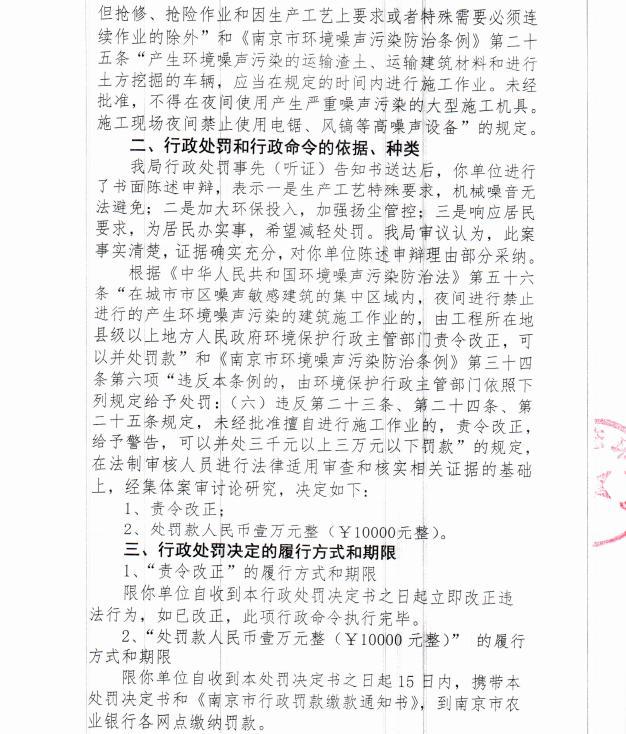 但抢修、抢险作业和因生产工艺上要求或者特殊需要必须连
续作业的除外”和《南京市环境噪声污染防治条例》第二十
五条“产生环境噪声污染的运输渣土、运输建筑材料和进行
土方挖掘的车辆，应当在规定的时间内进行施工作业。未经
批准，不得在夜间使用产生严重噪声污染的大型施工机具。
施工现场夜间禁止使用电锯、风镐等高噪声设备”的规定。
二、行政处罚和行政命令的依据、种类
我局行政处罚事先（听证）告知书送达后，你单位进行
了书面陈述申辩，表示一是生产工艺特殊要求，机械噪音无
法避免；二是加大环保投入，加强扬尘管控；三是响应居民
要求，为居民办实事，希望减轻处罚。我局审议认为，此案
事实清楚，证据确实充分，对你单位陈述申辩理由部分采纳。
根据《中华人民共和国环境噪声污染防治法》第五十六
条“在城市市区噪声敏感建筑的集中区域内，夜间进行禁止
进行的产生环境噪声污染的建筑施工作业的，由工程所在地
县级以上地方人民政府环境保护行政主管部门责令改正，可
以并处罚款”和《南京市环境噪声污染防治条例》第三十四
条第六项“违反本条例的，由环境保护行政主管部门依照下
列规定给予处罚：（六）违反第二十三条、第二十四条、第
二十五条规定，未经批准擅自进行施工作业的，责令改正，
给予警告，可以并处三千元以上三万元以下罚款”的规定，
在法制审核人员进行法律适用审查和核实相关证据的基础
上，经集体案审讨论研究，决定如下：
1、责令改正；
2、处罚款人民币壹万元整（￥10000元整）。
三、行政处罚决定的履行方式和期限
1、“责令改正”的履行方式和期限
限你单位自收到本行政处罚决定书之日起立即改正违
法行为，如已改正，此项行政命令执行完毕。
2、“处罚款人民币壹万元整（￥10000 元整）” 的履行
方式和期限
限你单位自收到本处罚决定书之日起 15 日内，携带本
处罚决定书和《南京市行政罚款缴款通知书》，到南京市农
业银行各网点缴纳罚款。